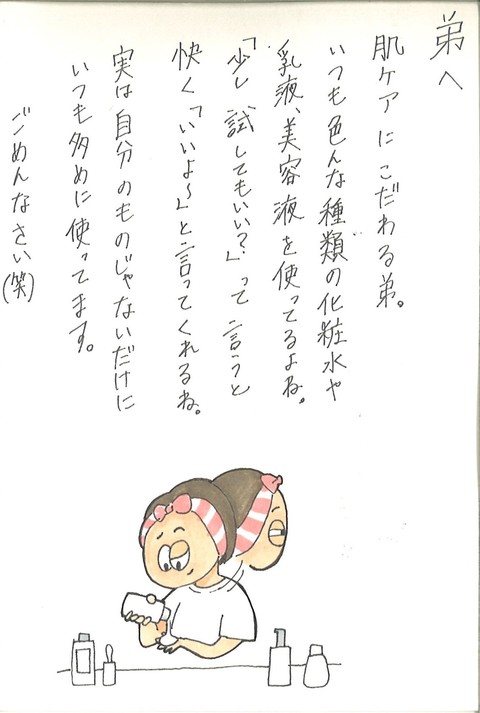 弟へ
肌ケアにこだわる弟。
いつも色んな種類の化粧水や
乳液、美容液を使ってるよね。
「少し試してもいい?」って言うと
快く「いいよ〜」と言ってくれるね。
実は自分のものじゃないだけに
いつも多めに使ってます。
ごめんなさい(笑)